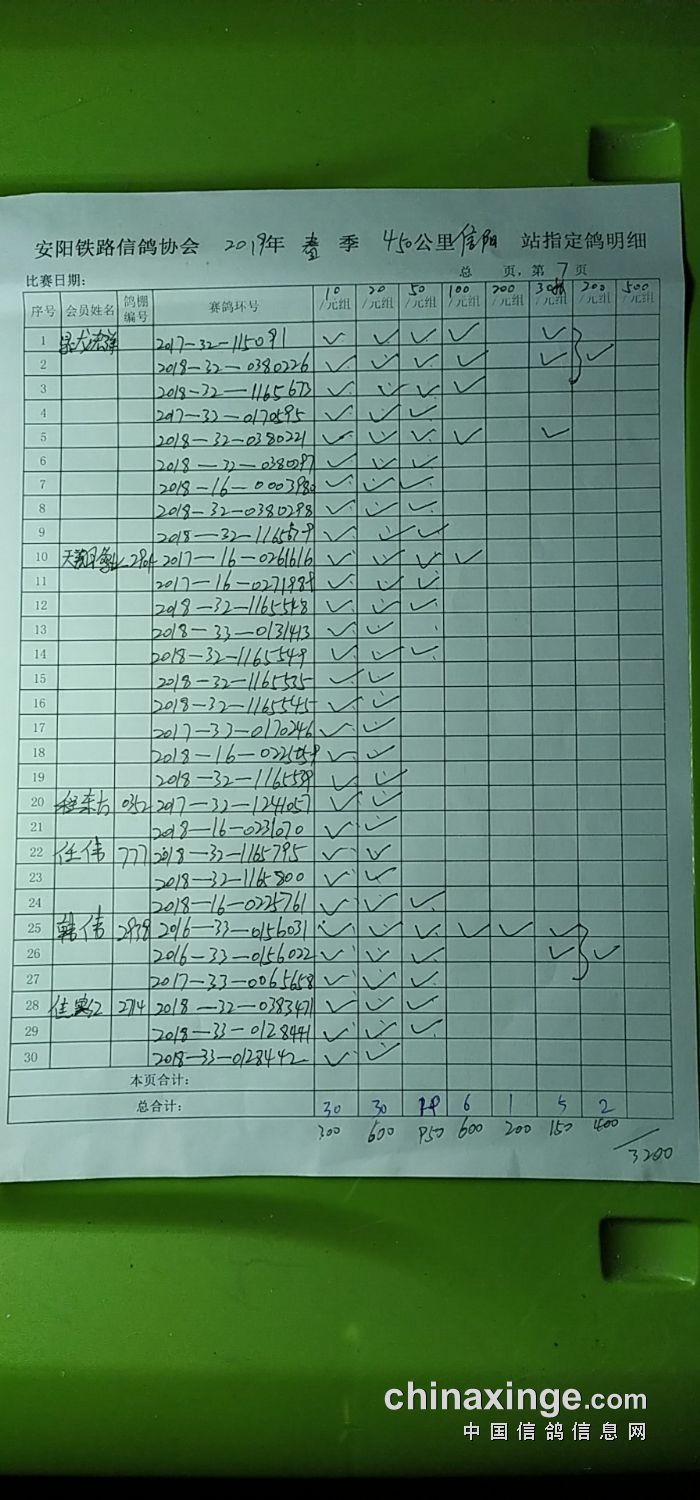 安阳铁路信鸽协会 2019年 春 季 450公里信阳 站指定鸽明细
比赛日期： 总 页，第 7 页
序号 会员姓名 鸽棚编号 赛鸽环号 10/元组 20/元组 50/元组 100/元组 200/元组 30 /元组 200/元组 500/元组
1 2017-32-115091 ✓ ✓ ✓ ✓ ✓
2 2018-32-0380226 ✓ ✓ ✓ ✓ ✓ ✓
3 2018-32-1165673 ✓ ✓ ✓ ✓
4 2017-32-0170595 ✓ ✓ ✓
5 2018-32-0380221 ✓ ✓ ✓ ✓ ✓
6 2018-32-0380297 ✓ ✓ ✓
7 2018-16-0003980 ✓ ✓ ✓
8 2018-32-0380298 ✓ ✓ ✓
9 2018-32-1165679 ✓ ✓ ✓
10 2017-16-0261616 ✓ ✓ ✓ ✓
11 2017-16-0271989 ✓ ✓ ✓
12 2018-32-1165548 ✓ ✓ ✓
13 2018-33-0131413 ✓ ✓
14 2018-32-1165549 ✓ ✓ ✓
15 2018-32-1165535 ✓ ✓
16 2018-32-1165545 ✓ ✓
17 2017-33-0170246 ✓ ✓
18 2018-16-0225059 ✓ ✓
19 2018-32-1165539 ✓ ✓
20 程东方 0352 2017-32-1241057 ✓ ✓
21 2018-16-0231070 ✓ ✓
22 任伟 777 2018-32-1165795 ✓ ✓
23 2018-32-1165800 ✓ ✓
24 2018-16-0225761 ✓ ✓ ✓
25 韩伟 2938 2016-33-0156031 ✓ ✓ ✓ ✓ ✓ ✓
26 2016-33-0156022 ✓ ✓ ✓ ✓ ✓
27 2017-33-0065658 ✓ ✓ ✓
28 2714 2018-32-0383471 ✓ ✓ ✓
29 2018-33-0128441 ✓ ✓ ✓
30 2018-33-0128442 ✓ ✓
本页合计：
总合计： 30 30 19 6 1 5 2
300 600 950 600 200 150 400
3200
chinaxinge.com
中国信鸽信息网